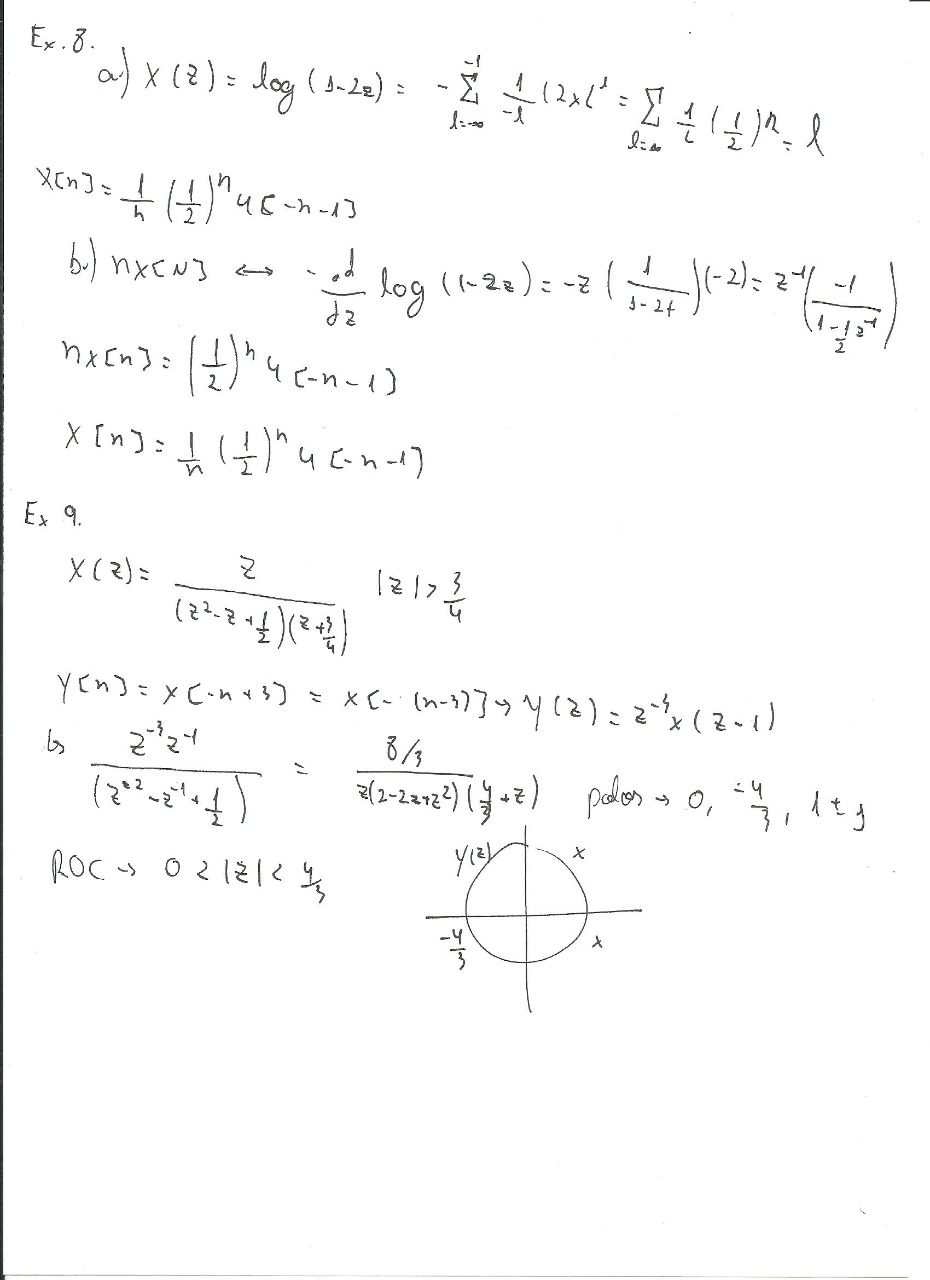 Ex. 8.
a) X(z) = log(1-2z) = - Σ_{l=-∞}^{-1} 1/-l (2x(^l = Σ_{l=-∞} 1/l (1/2)^n = l
X[n] = 1/n (1/2)^n u[-n-1]
b.) nx[N] ↔ - d/dz log(1-2z) = -z (1/(1-2z))(-2) = z^-1 (-1/(1-1/2 z^-1))
nx[n] = (1/2)^n u[-n-1]
X[n] = 1/n (1/2)^n u[-n-1]
Ex 9.
X(z) = z/((z^2-z+1/2)(z+3/4)) |z| > 3/4
Y[n] = x[-n+3] = x[-(n-3)] → Y(z) = z^-3 x(z-1)
↳ z^-3 z^-1/(z^-2-z^-1+1/2) = 8/3/(z(2-2z+z^2)(4/3+z)) polos → 0, -4/3, 1±j
ROC → 0 < |z| < 4/3
Y(z) x
-4/3 x